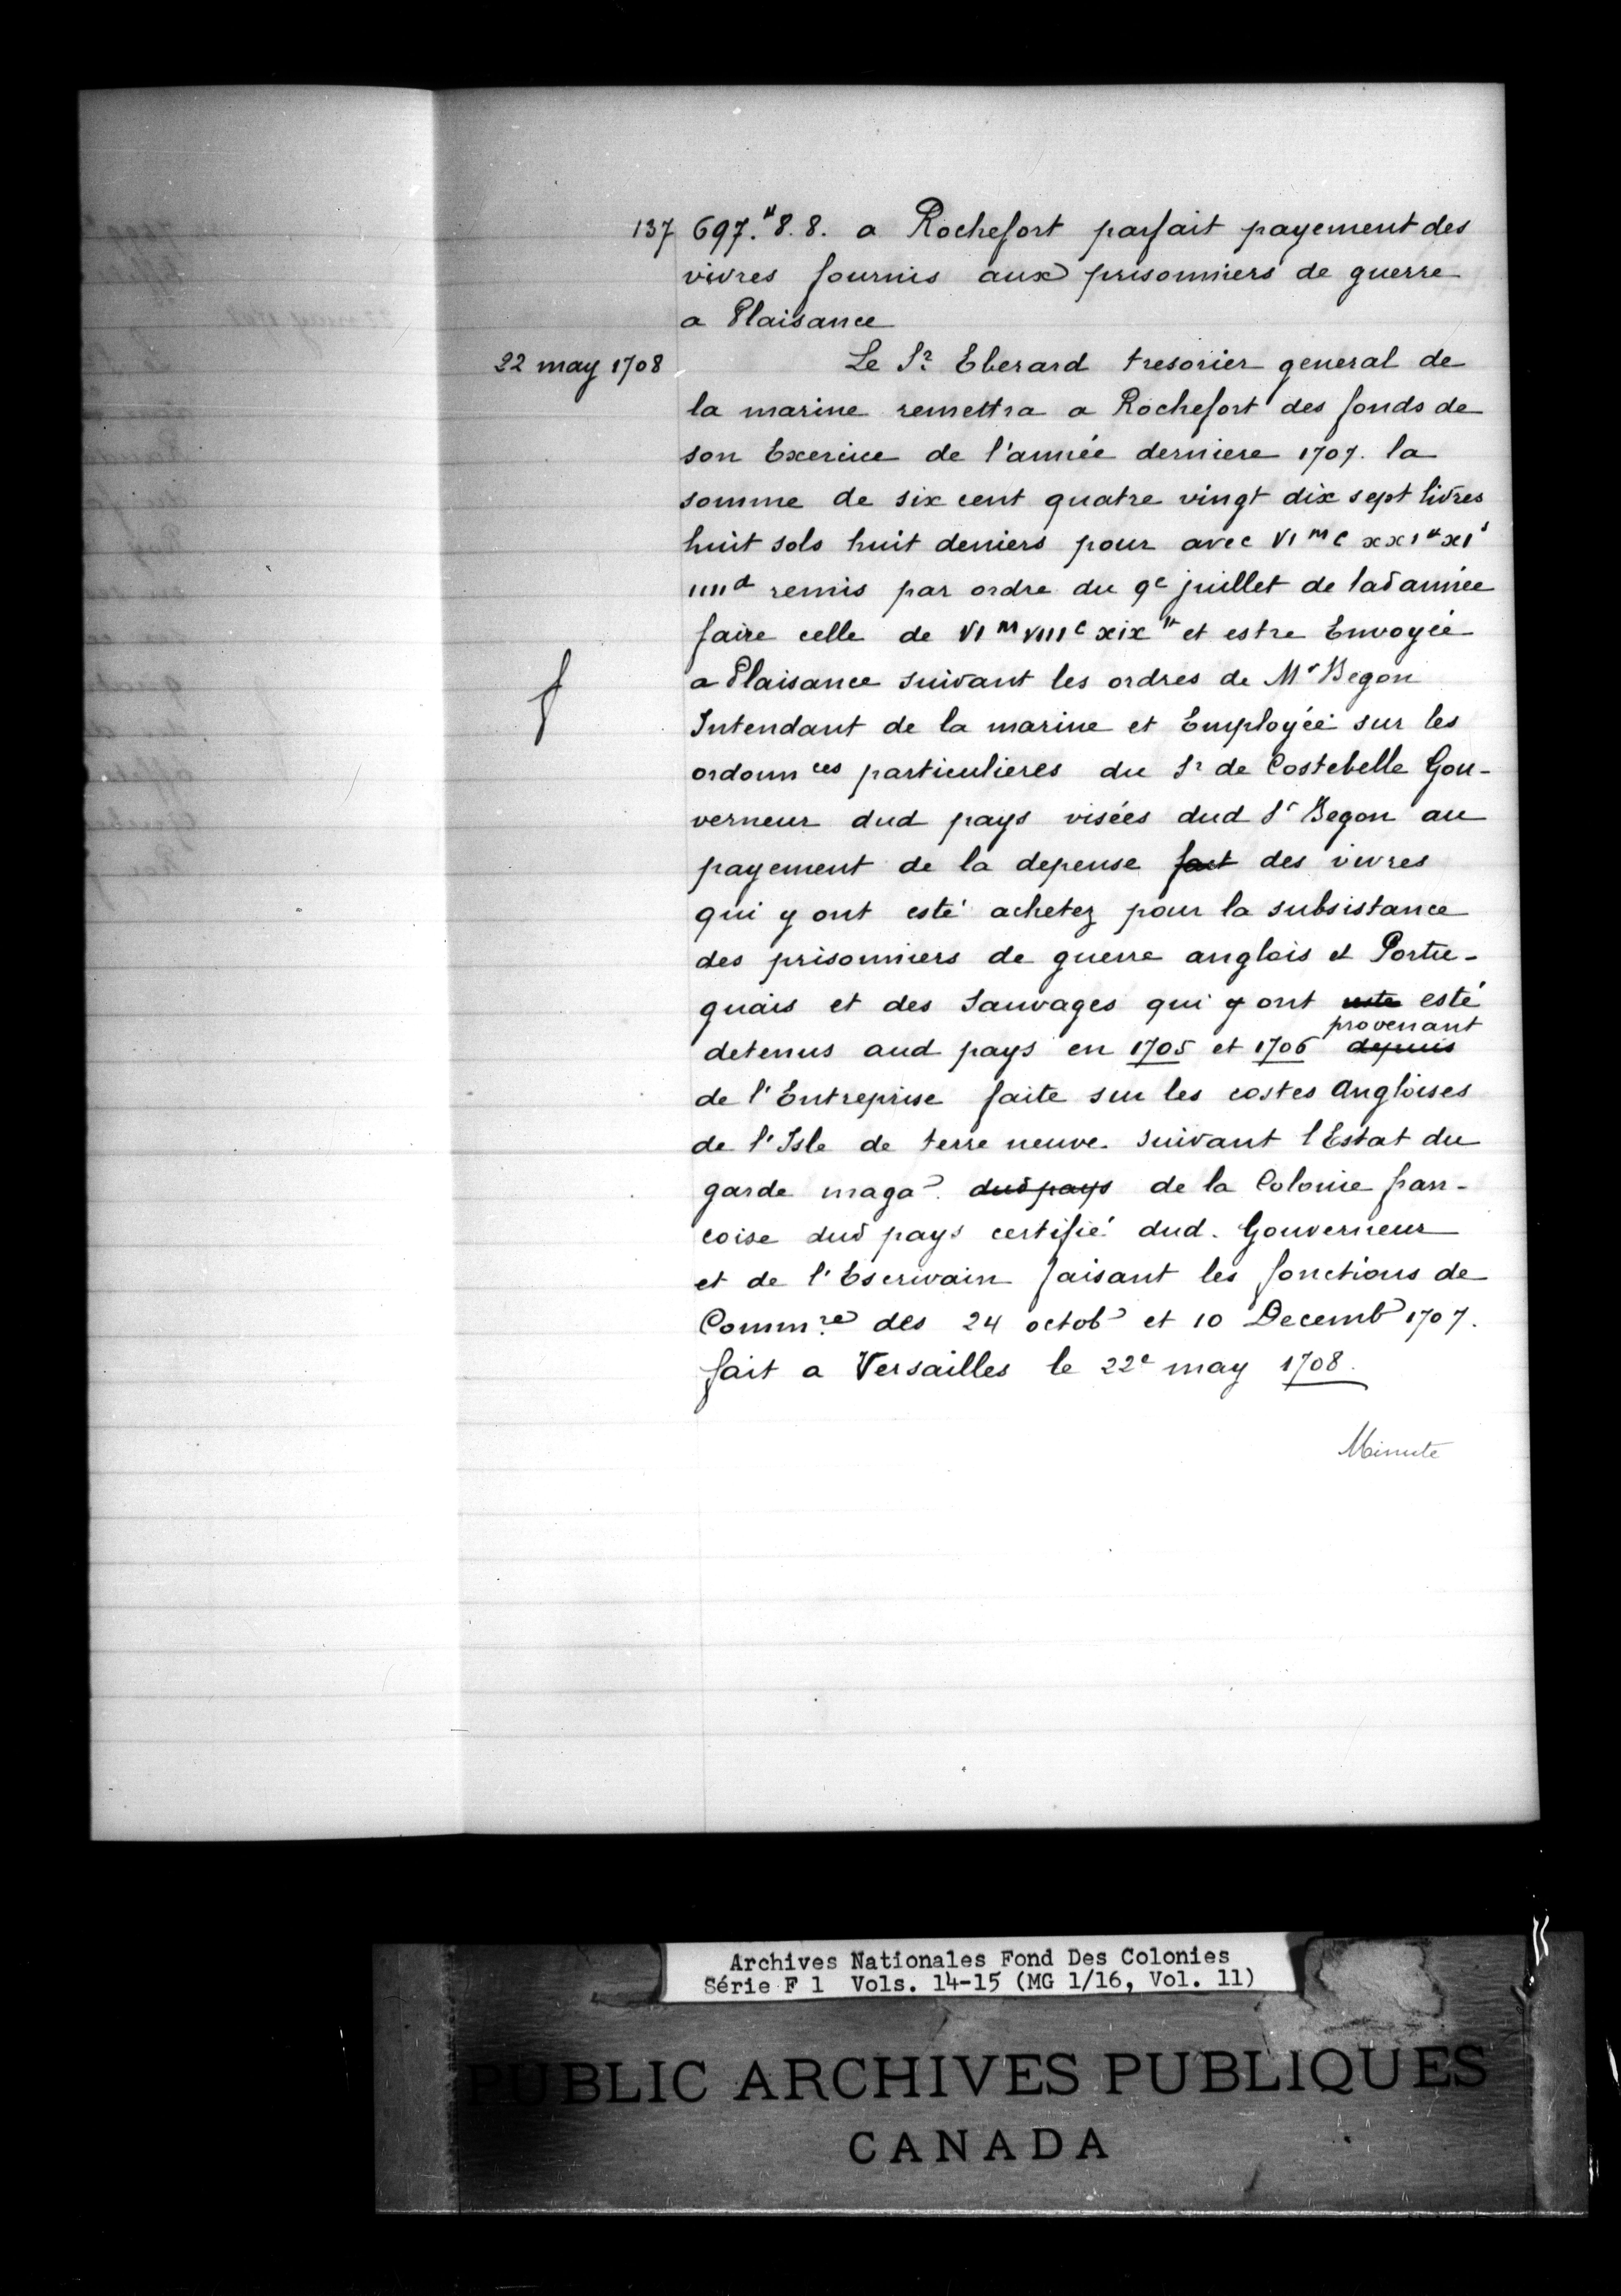 137 697.# 8. 8. a Rochefort parfait payement des
vivres fournis aux prisonniers de guerre
a Plaisance
22 may 1708 Le Sr Eberard tresorier general de
la marine remettra a Rochefort des fonds de
son Exercice de l'année derniere 1707. la
somme de six cent quatre vingt dix sept livres
huit sols huit deniers pour avec VI m C xxi # xi s
IIII d remis par ordre du 9e juillet de lad année
faire celle de VI m VIII C xix # et estre Envoyée
a Plaisance suivant les ordres de Mr Begon
Intendant de la marine et Employée sur les
ordonnces particulieres du Sr de Costebelle Gou-
verneur dud pays visées dud Sr Begon au
payement de la depense fait des vivres
qui y ont esté achetez pour la subsistance
des prisonniers de guerre anglois et Portu-
guais et des Sauvages qui y ont esté
provenant
detenus aud pays en 1705 et 1706 depuis
de l'Entreprise faite sur les costes Angloises
de l'Isle de terre neuve suivant l'Estat du
garde maga. dud pays de la Colonie fran-
coise dud pays certifié dud. Gouverneur
et de l'Escrivain faisant les fonctions de
Commre des 24 octob et 10 Decemb 1707.
fait a Versailles le 22e may 1708.
Minute
Archives Nationales Fond Des Colonies
Série F 1 Vols. 14-15 (MG 1/16, Vol. 11)
PUBLIC ARCHIVES PUBLIQUES
CANADA